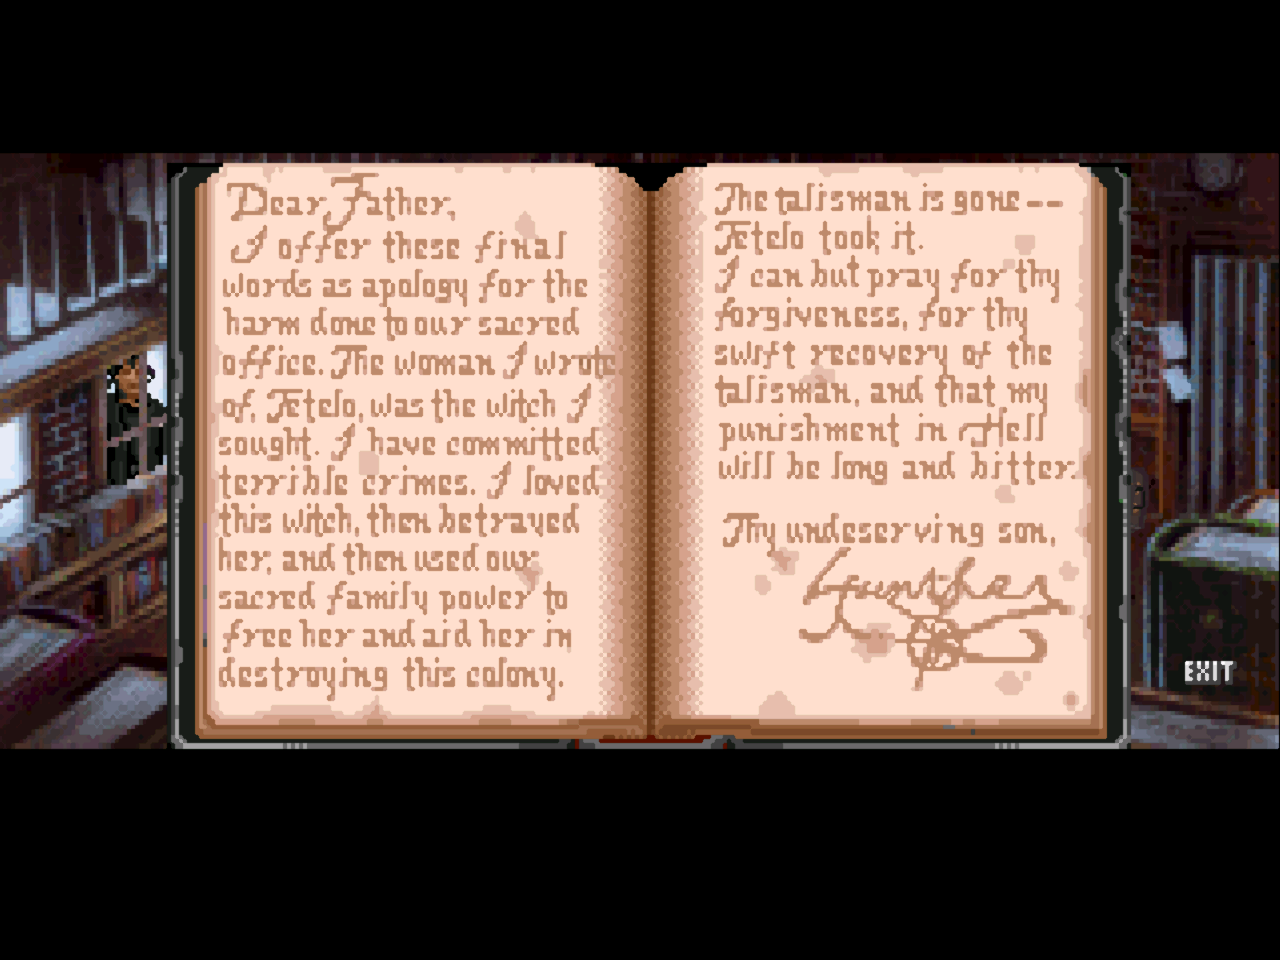 Dear Father,
I offer these final
words as apology for the
harm done to our sacred
office. The woman I wrote
of, Tetelo, was the witch I
sought. I have committed
terrible crimes. I loved
this witch, then betrayed
her, and then used our
sacred family power to
free her and aid her in
destroying this colony.
The talisman is gone --
Tetelo took it.
I can but pray for thy
forgiveness, for thy
swift recovery of the
talisman, and that my
punishment in Hell
will be long and bitter.
Thy undeserving son,
Gunther
EXIT